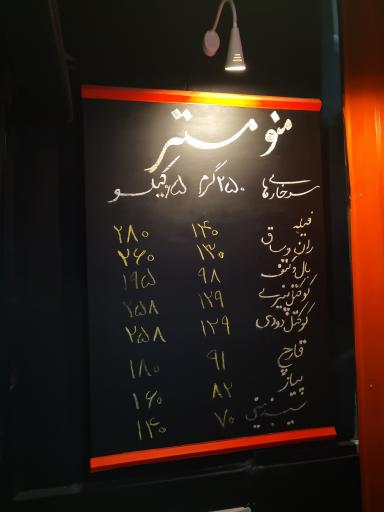 منو متر
سوخاری‌ها ۲۵۰ گرم ۰/۵ کیلو
فیله ۱۴۰ ۲۸۰
ران و ساق ۱۳۰ ۲۶۰
بال و کتف ۹۸ ۱۹۵
کوکتل پنیری ۱۲۹ ۲۵۸
کوکتل دودی ۱۲۹ ۲۵۸
قارچ ۹۱ ۱۸۰
پیاز ۸۲ ۱۶۰
سیب زمینی ۷۰ ۱۴۰